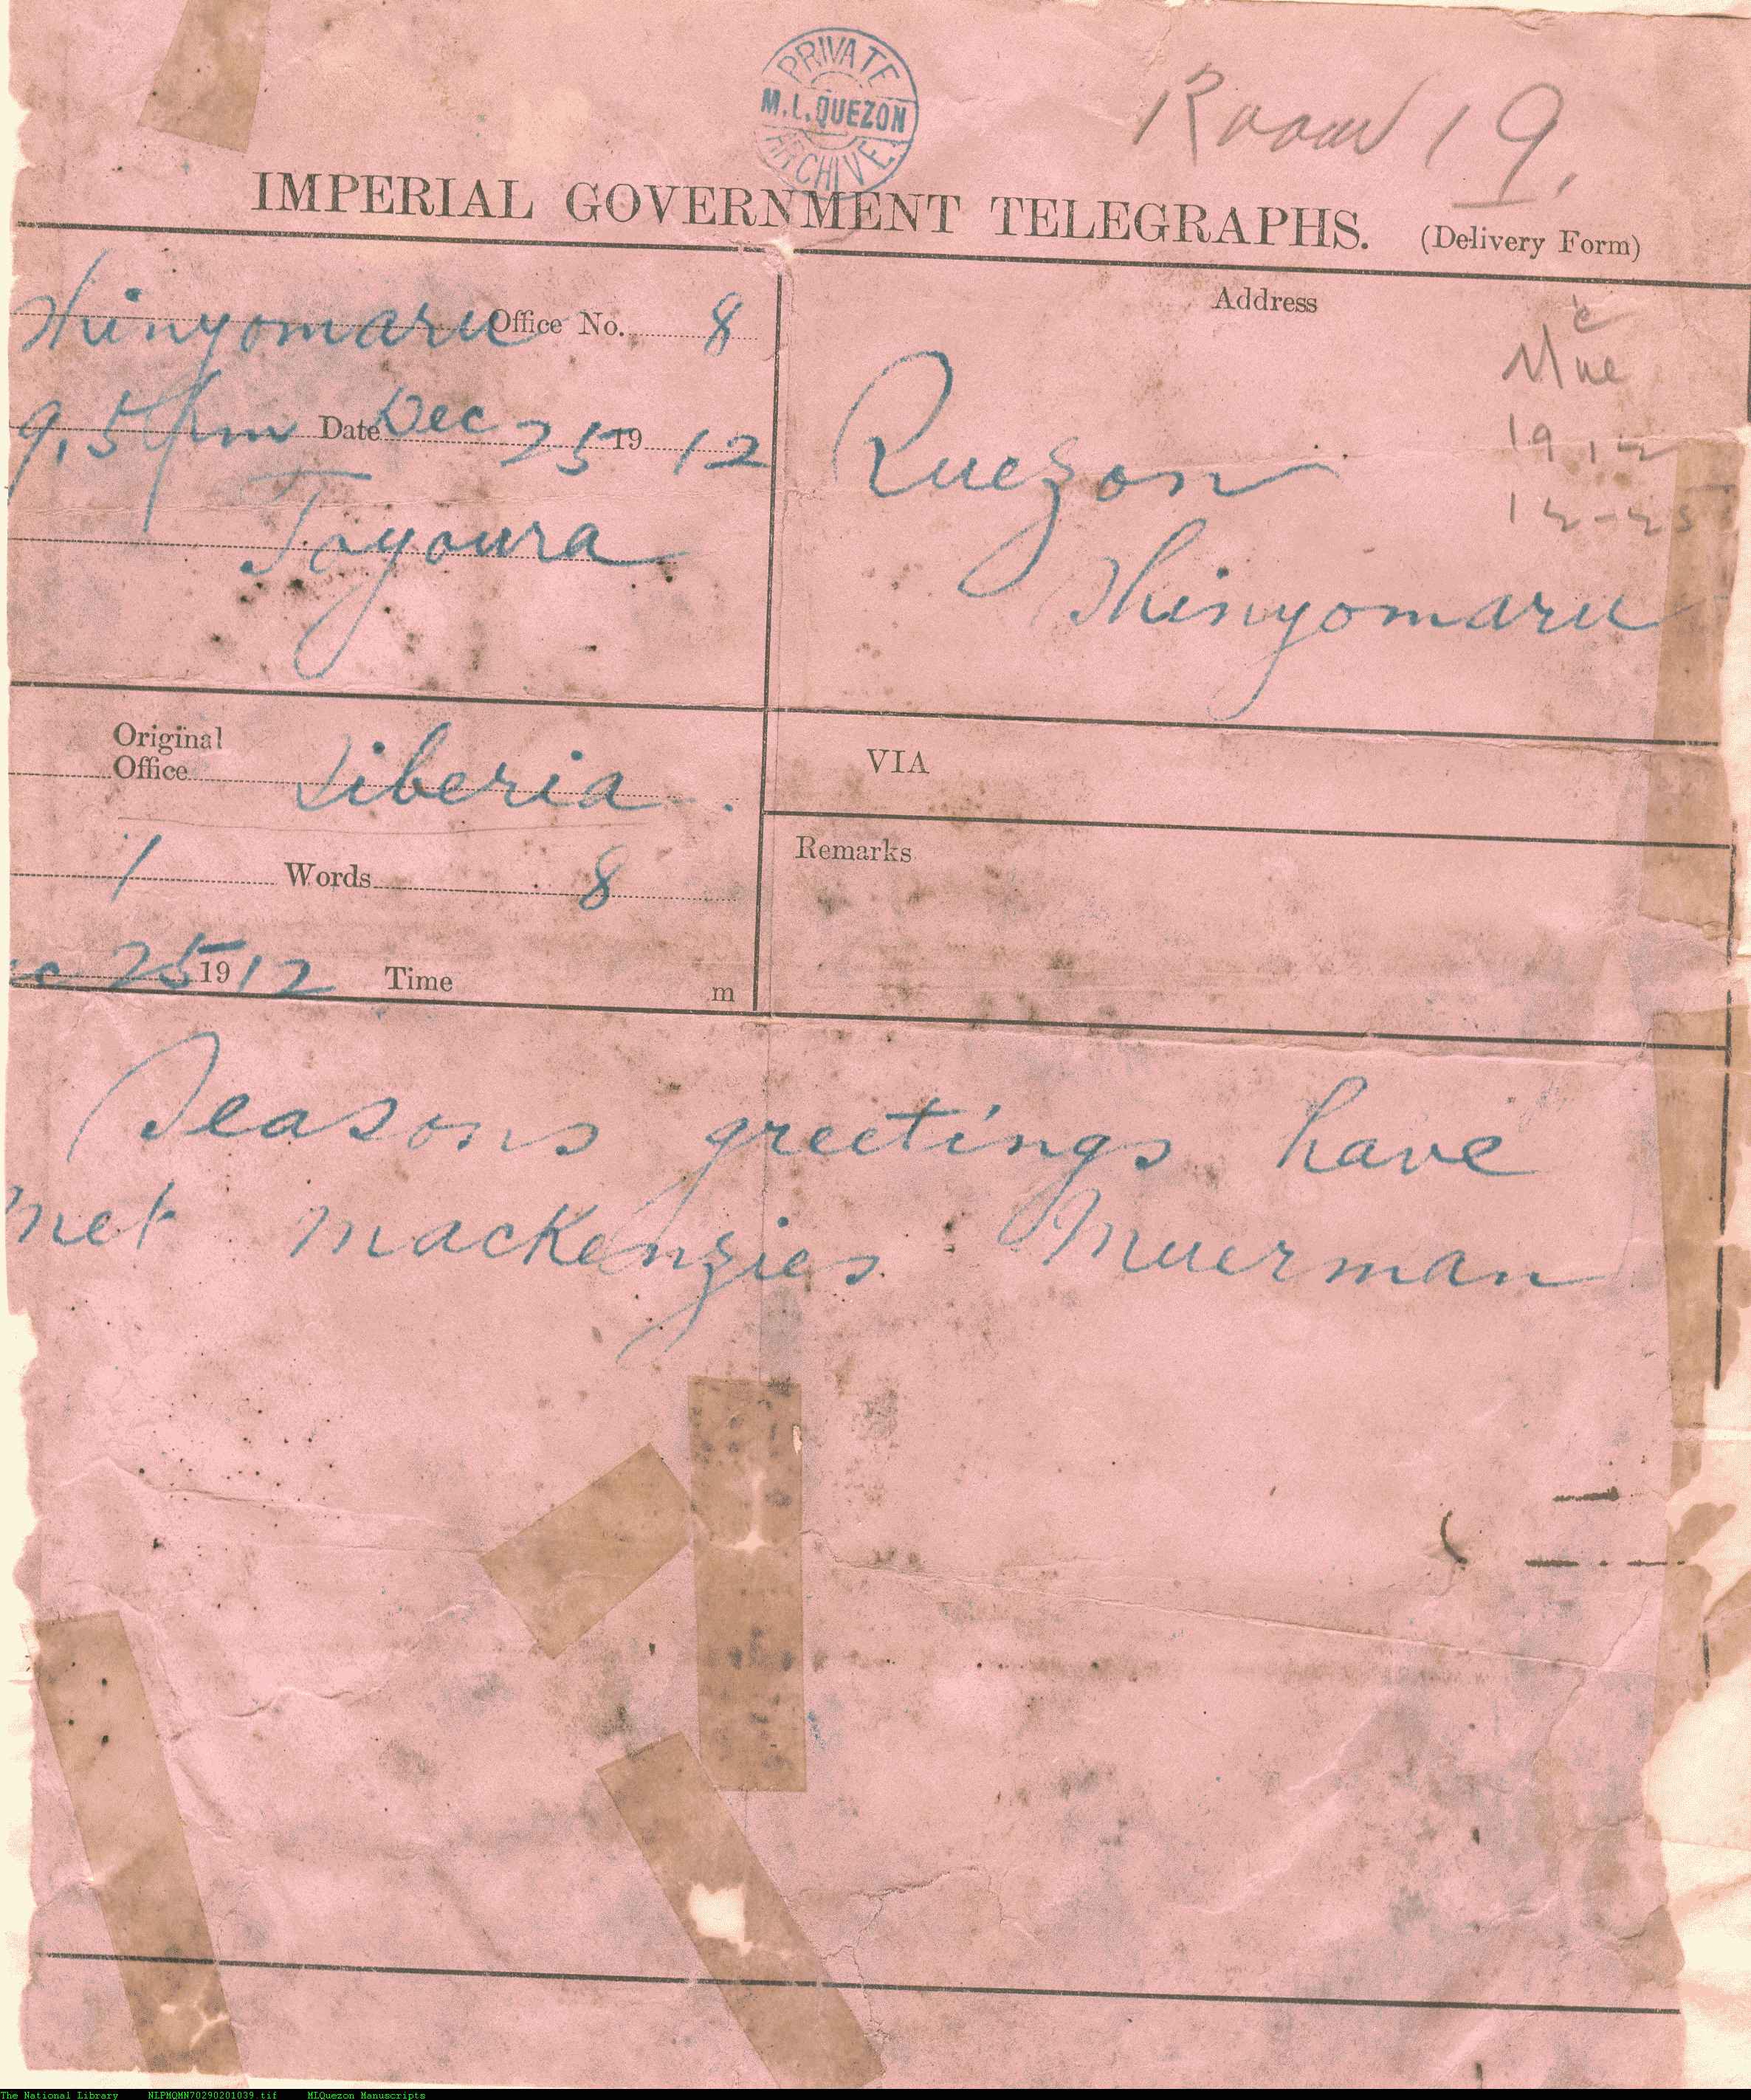 PRIVATE
M.L.QUEZON
ARCHIVE
Room 19.
IMPERIAL GOVERNMENT TELEGRAPHS. (Delivery Form)
Shinyomaru Office No. 8
Date Dec 25 1912
Address
Quezon
Shinyomaru
1912
12-25
Original
Office Siberia
VIA
1 Words 8
Remarks
25 1912 Time m
Seasons greetings have
met mackenzies Muerman
The National Library NLPMQMN70290201039.tif MLQuezon Manuscripts